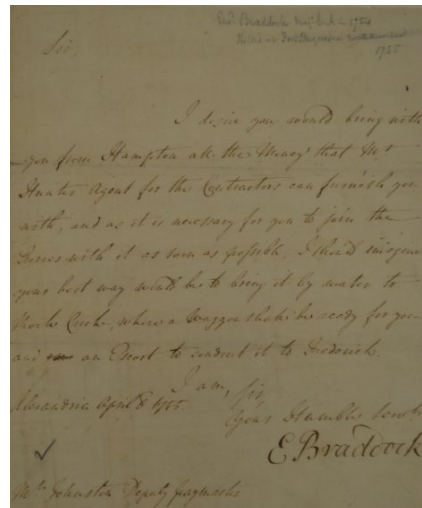 Sir,
I desire you would bring with
you from Hampton all the Money that Mr
Hunter Agent for the Contractors can furnish you
with, and as it is necessary for you to join the
Forces with it as soon as possible, I should imagine
your best way would be to bring it by water to
Rock Creek, where a Waggon shall be ready for you
and an Escort to conduct it to Frederick.
I am, Sir,
Alexandria April 1755.
Your Humble Servt
E Braddock
Mr Johnston Deputy paymaster